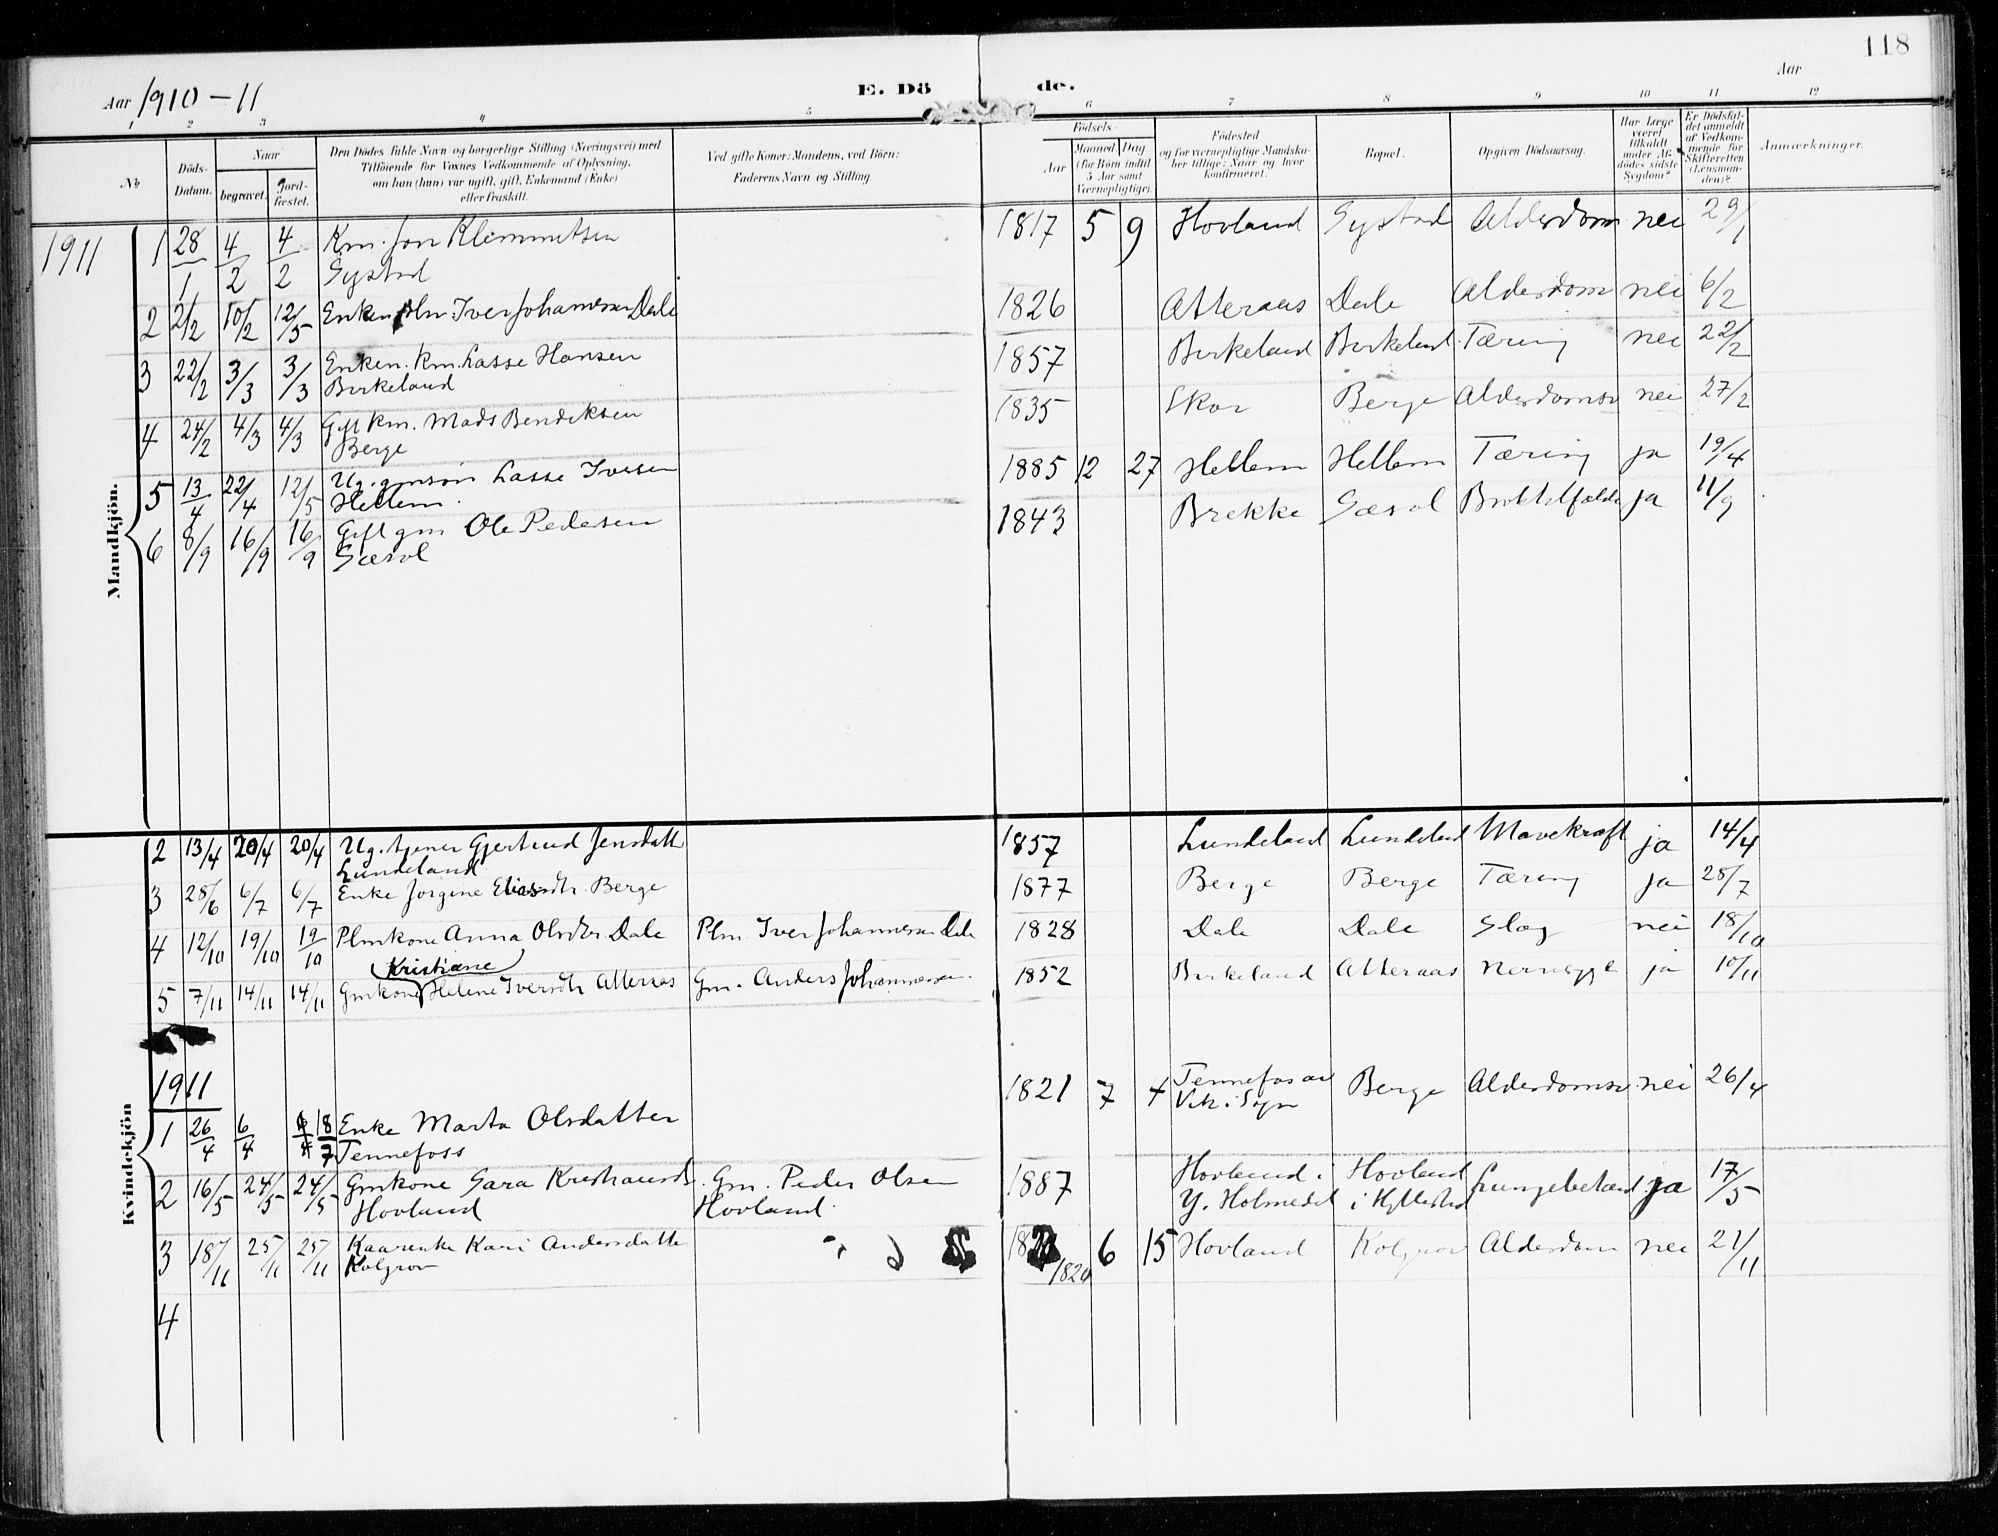 118
Aar 1910 - 11
E. Dö de.
Aar
1 2 3 4 5 6 7 8 9 10 11 12
No
Döds-Datum.
Naar
begravet.
jord-fæstet.
Den Dödes fulde Navn og borgerlige Stilling (Næringsvei) med
Tilföiende for Voxnes Vedkommende af Oplysning,
om han (hun) var ugift, gift, Enkemand (Enke)
eller fraskilt.
Ved gifte Koner: Mandens, ved Börn:
Faderens Navn og Stilling.
Födsels-
Aar
Maaned Dag
(for Börn indtil
5 Aar samt
Værnepligtige).
Födested
og for værnepligtige Mandska-
ber tillige: Naar og hvor
konfirmeret.
Bopæl.
Opgiven Dödsaarsag.
Har Læge
været
tilkaldt
under Af-
dödes sidste
Sygdom?
Er Dödsfal-
det anmeldt
af Vedkom-
mende for
Skifteretten
(Lensman-
den)?
Anmærkninger.
Mandkjön.
1911
1 28/1 4/2 4/2 Km. Jon Klemmetsen 1817 5 9 Hovland Systad Alderdom nei 29/1
Systad
2 2/2 10/2 12/5 Enkem Plm. Iver Johannesen Dale 1826 Atteraas Dale Alderdom nei 6/2
3 22/2 3/3 3/3 Enkem. Km. Lasse Hansen 1857 Birkeland Birkeland Tæring nei 22/2
Birkeland
4 24/2 4/3 4/3 Gift Km. Mads Bendiksen 1835 Skor Berge Alderdomsv nei 27/2
Berge
5 13/4 22/4 12/5 Ug. gmsøn Lasse Iversen 1885 12 27 Hellem Hellem Tæring ja 19/4
Hellem
6 8/9 16/9 16/9 Gift gm Ole Pedersen 1843 Brekke Sæsol ja 11/9
Sæsol
Kvindekjön
2 13/4 20/4 20/4 Ug. tjener Gjertrud Jensdatt 1857 Lundeland Lundeland Mavekræft ja 14/4
Lundeland
3 28/6 6/7 6/7 Enke Jorgine Eliasdtr. Berge 1877 Berge Berge Tæring ja 28/7
4 12/10 19/10 19/10 Plmkone Anna Olsdtr Dale Plm. Iver Johannesen Dale 1828 Dale Dale Slag nei 18/10
Kristiane
5 7/11 14/11 14/11 Gmkone Helene Iversdtr Atteraas Gm. Anders Johannesen 1852 Birkeland Atteraas ja 10/11
1911
1 26/4 6/4 18/7 Enke Marta Olsdatter 1821 7 4 Tennefos av Berge Alderdomsv nei 26/4
Tennefoss Vik i Sogn
2 16/5 24/5 24/5 Gmkone Sara Gm. Peder Olsen 1887 Hovland i Hovland Lungebetænd. ja 17/5
Hovland Hovland Y. Holmedal i Hyllestad
3 18/11 25/11 25/11 Kaarenke Kari Andersdatte 1820 6 15 Hovland Kolgrov Alderdom nei 21/11
Kolgrov
4